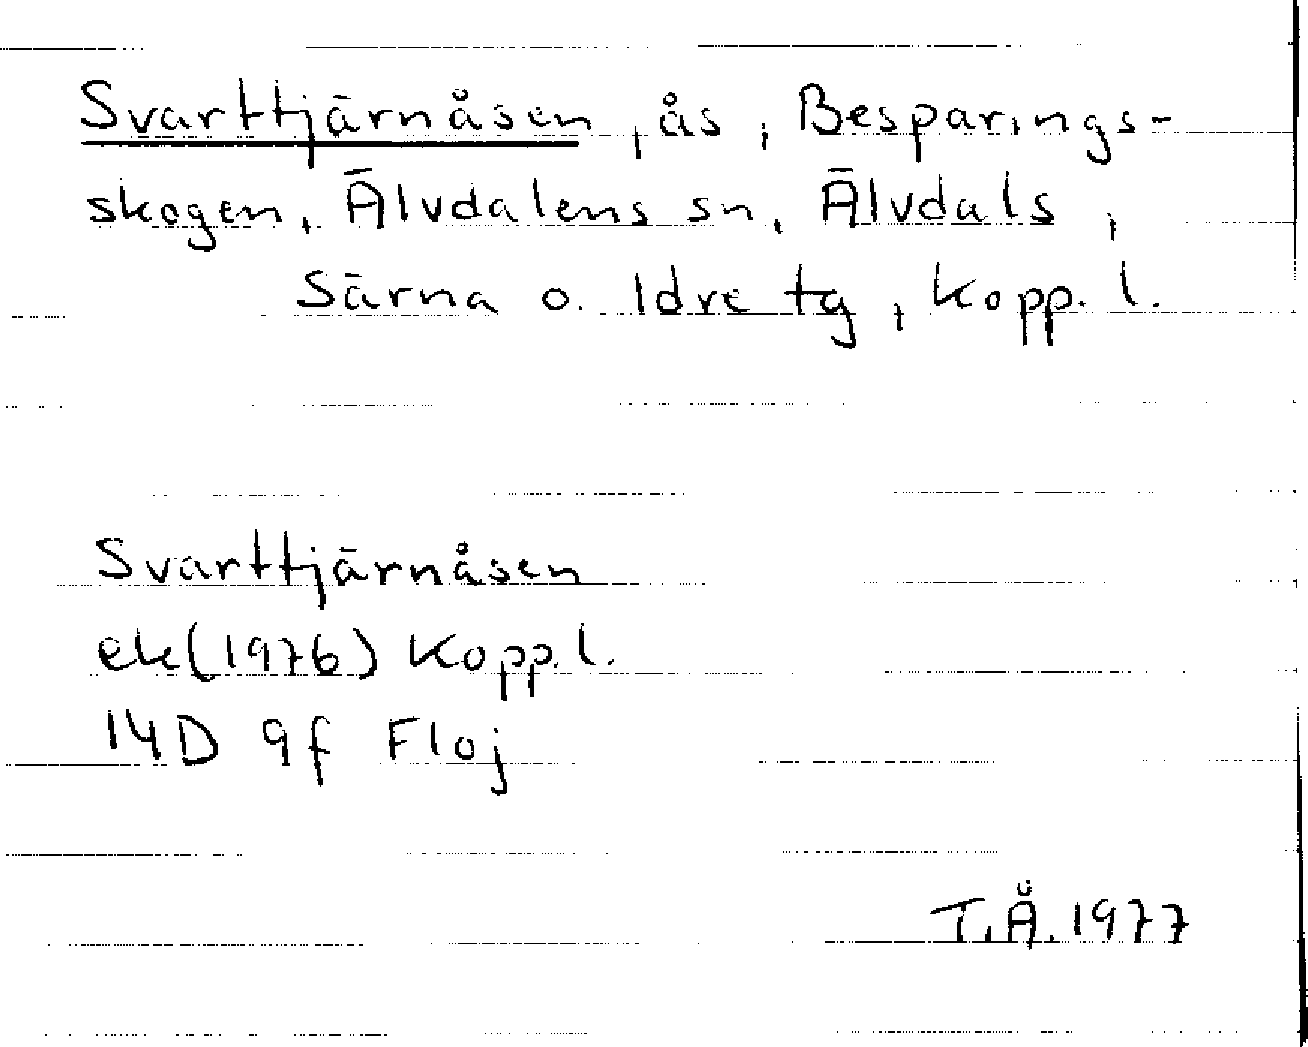 Svarttjärnåsen, ås, Besparings-
skogen, Älvdalens sn, Älvdals,
Särna o. Idre tg, Kopp. l.
Svarttjärnåsen
ek(1976) Kopp. l.
14D 9f Floj
T.Å. 1977